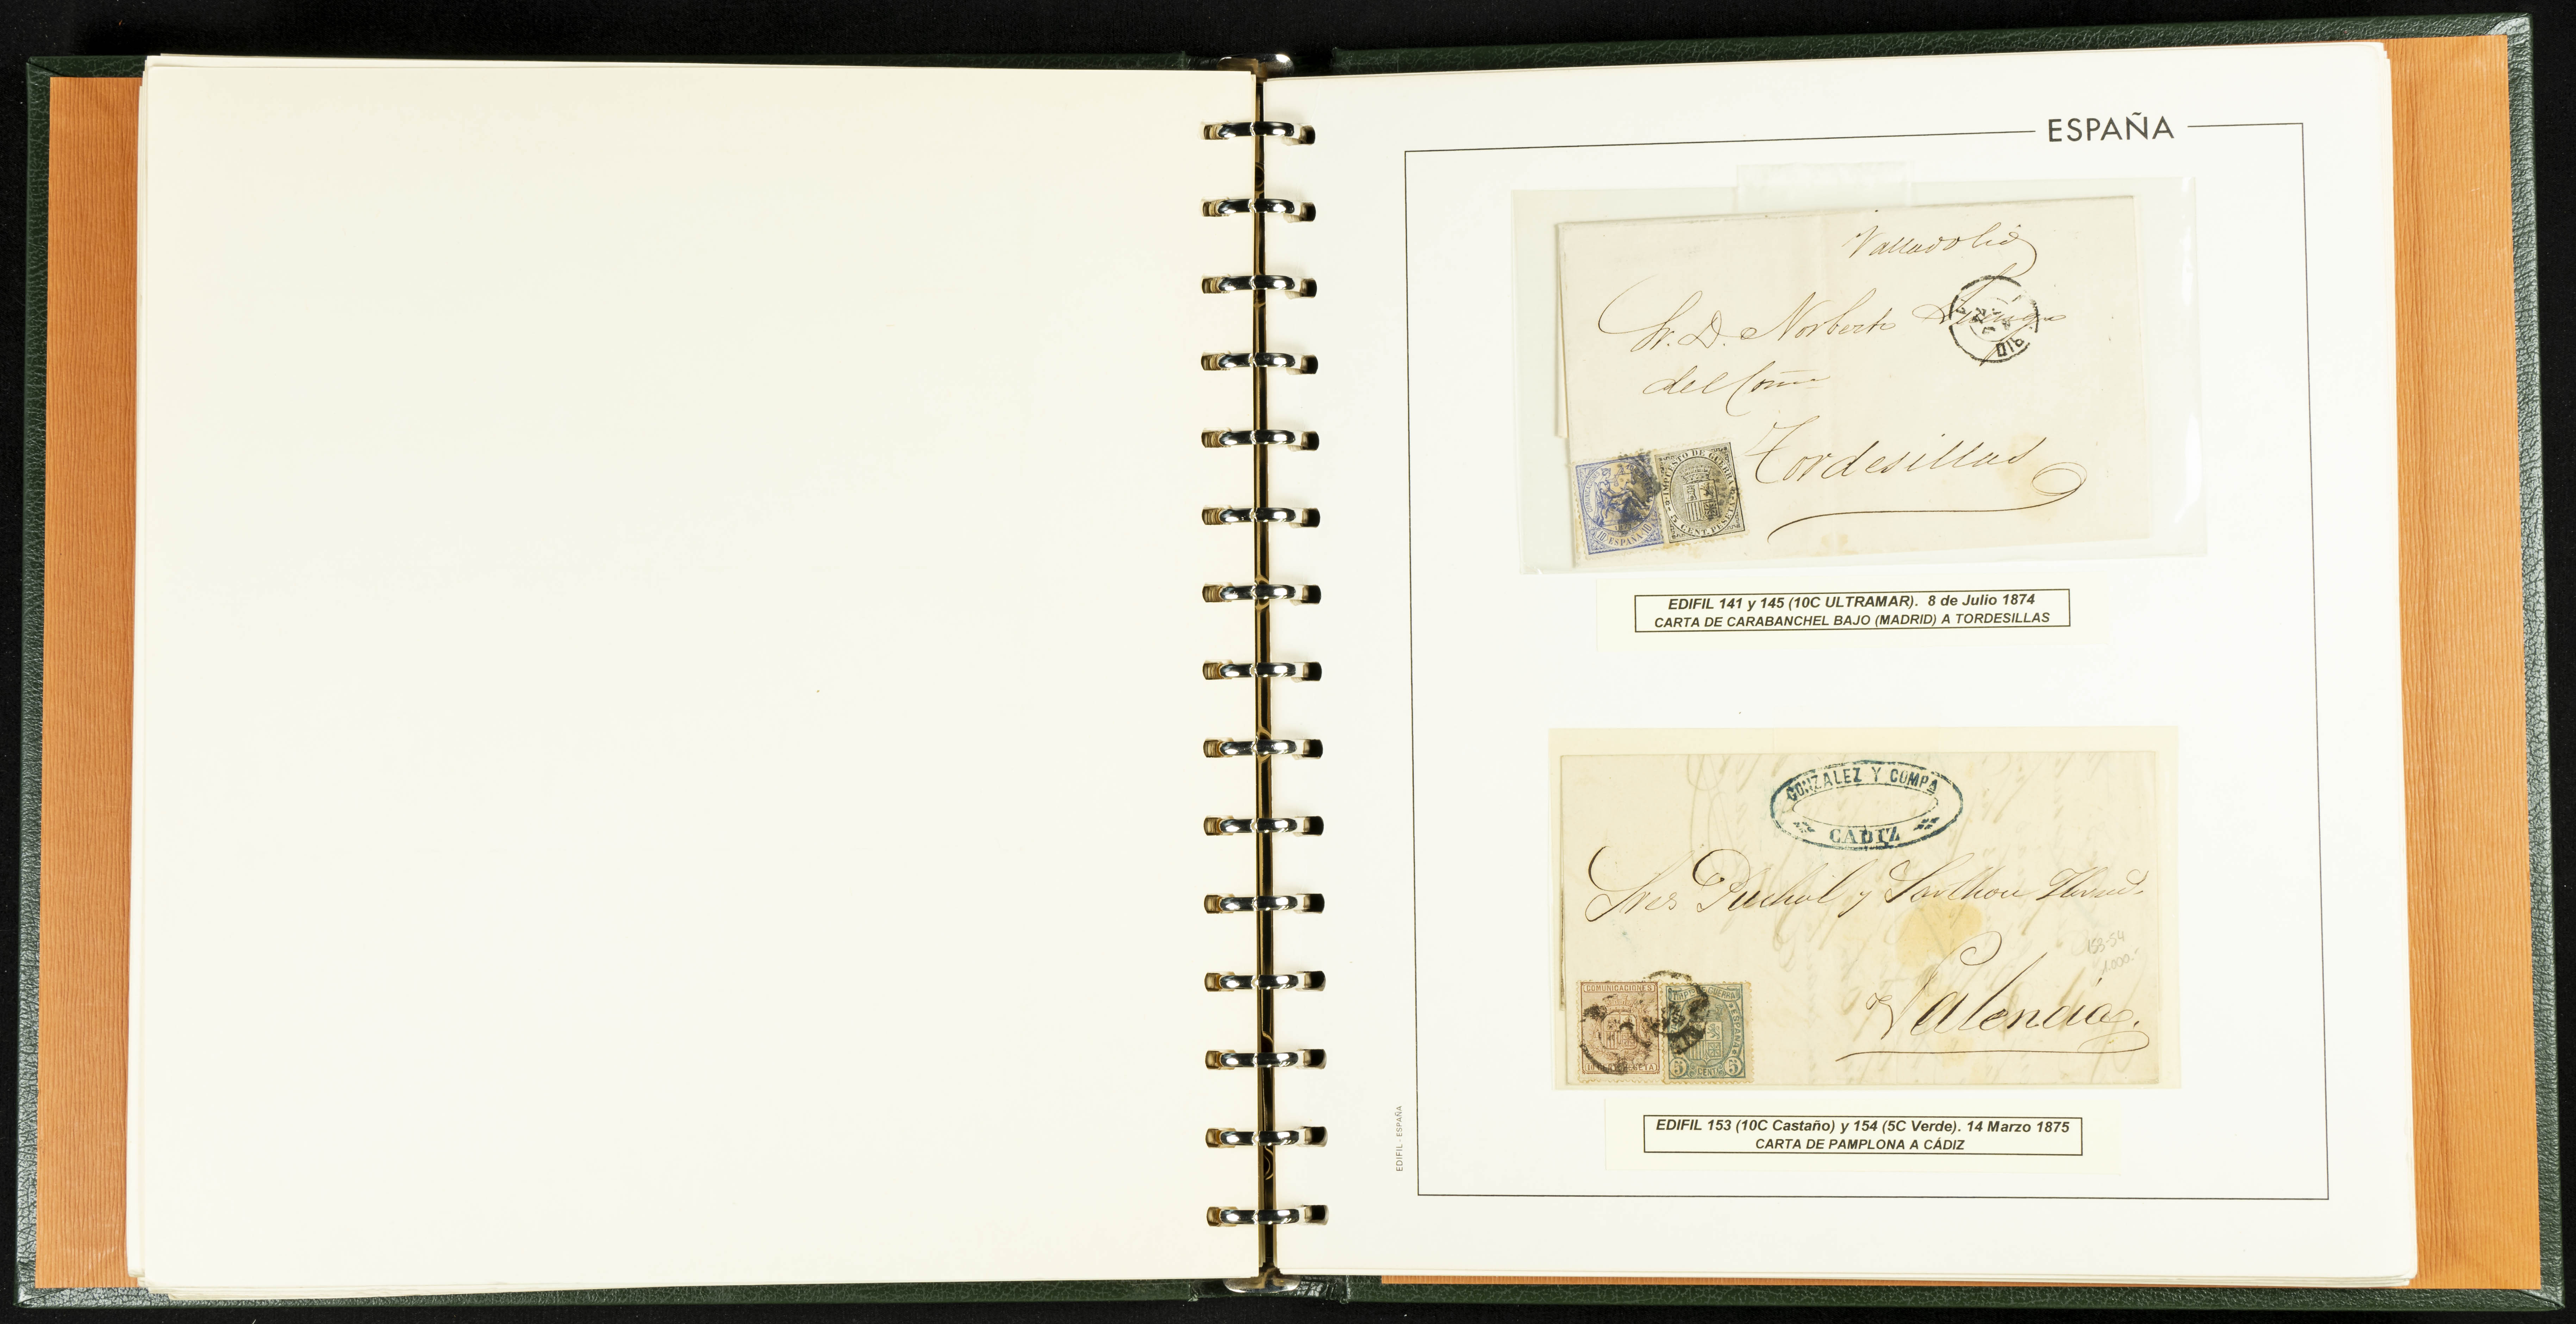 ESPAÑA
Valladolid
Sr. D. Norberto
del Com
Tordesillas
IMPUESTO DE GUERRA
10 ESPAÑA 10
5 CENT. PESETA
EDIFIL 141 y 145 (10C ULTRAMAR). 8 de Julio 1874
CARTA DE CARABANCHEL BAJO (MADRID) A TORDESILLAS
GONZALEZ Y COMPA
CADIZ
Sres Puchol y Sarthou
153-54
1.000.-
Valencia.
COMUNICACIONES
ESPAÑA
5 CENTS 5
EDIFIL 153 (10C Castaño) y 154 (5C Verde). 14 Marzo 1875
CARTA DE PAMPLONA A CÁDIZ
EDIFIL - ESPAÑA